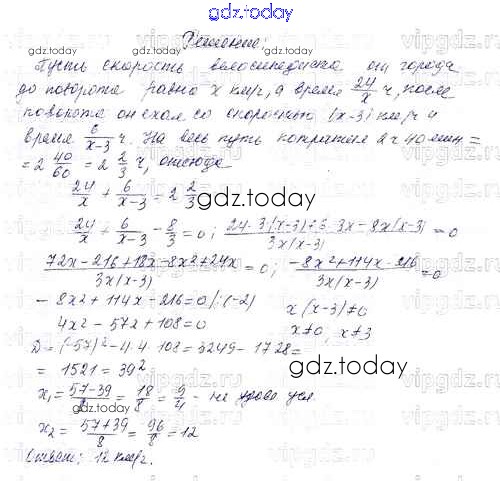 gdz.today
Решение:
Пусть скорость велосипедиста от города
до поворота равна x км/ч, а время 24/x ч, после
поворота он ехал со скоростью (x-3) км/ч и
время 6/(x-3) ч. На весь путь потратил 2 ч 40 мин =
= 2 40/60 = 2 2/3 ч, отсюда
24/x + 6/(x-3) = 2 2/3
gdz.today
24/x + 6/(x-3) - 8/3 = 0; (24·3(x-3)+6·3x-8x(x-3))/(3x(x-3)) = 0
(72x-216+18x-8x²+24x)/(3x(x-3)) = 0; (-8x²+114x-216)/(3x(x-3)) = 0
-8x²+114x-216=0 /:(-2) x(x-3)≠0
4x²-57x+108=0 x≠0, x≠3
D=(-57)²-4·4·108=3249-1728=
= 1521 = 39²
gdz.today
x₁ = (57-39)/8 = 18/8 = 9/4 - не удовл. усл.
x₂ = (57+39)/8 = 96/8 = 12
Ответ: 12 км/ч.
gdz.today